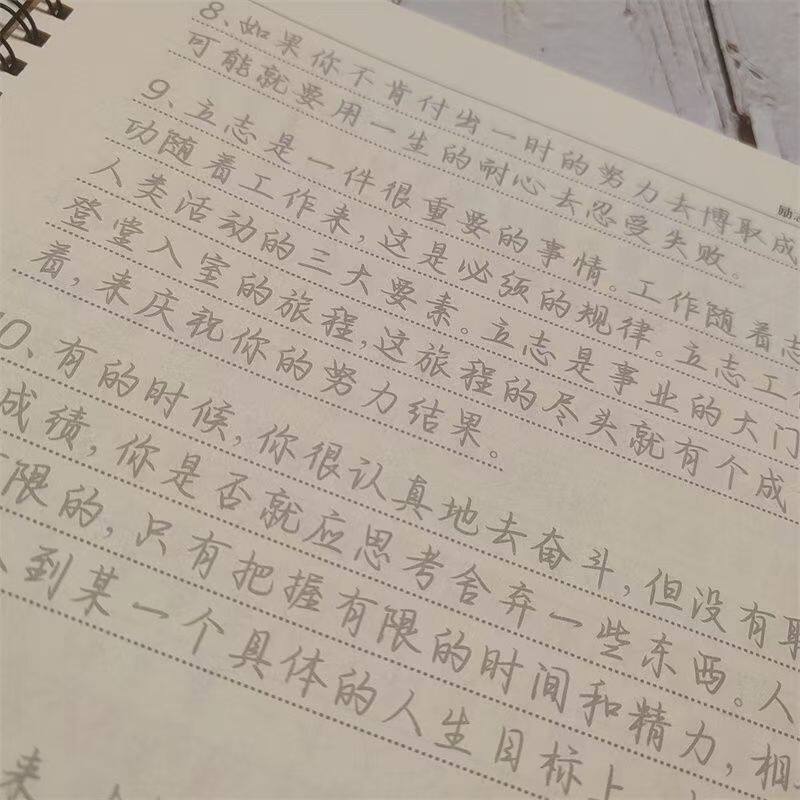 励志
8、如果你不肯付出一时的努力去博取成
可能就要用一生的耐心去忍受失败。
9、立志是一件很重要的事情。工作随着志
功随着工作来,这是必须的规律。立志工作
人类活动的三大要素。立志是事业的大门
登堂入室的旅程,这旅程的尽头就有个成
着,来庆祝你的努力结果。
10、有的时候,你很认真地去奋斗,但没有取
成绩,你是否就应思考舍弃一些东西。人
有限的,只有把握有限的时间和精力,相
到某一个具体的人生目标上
来